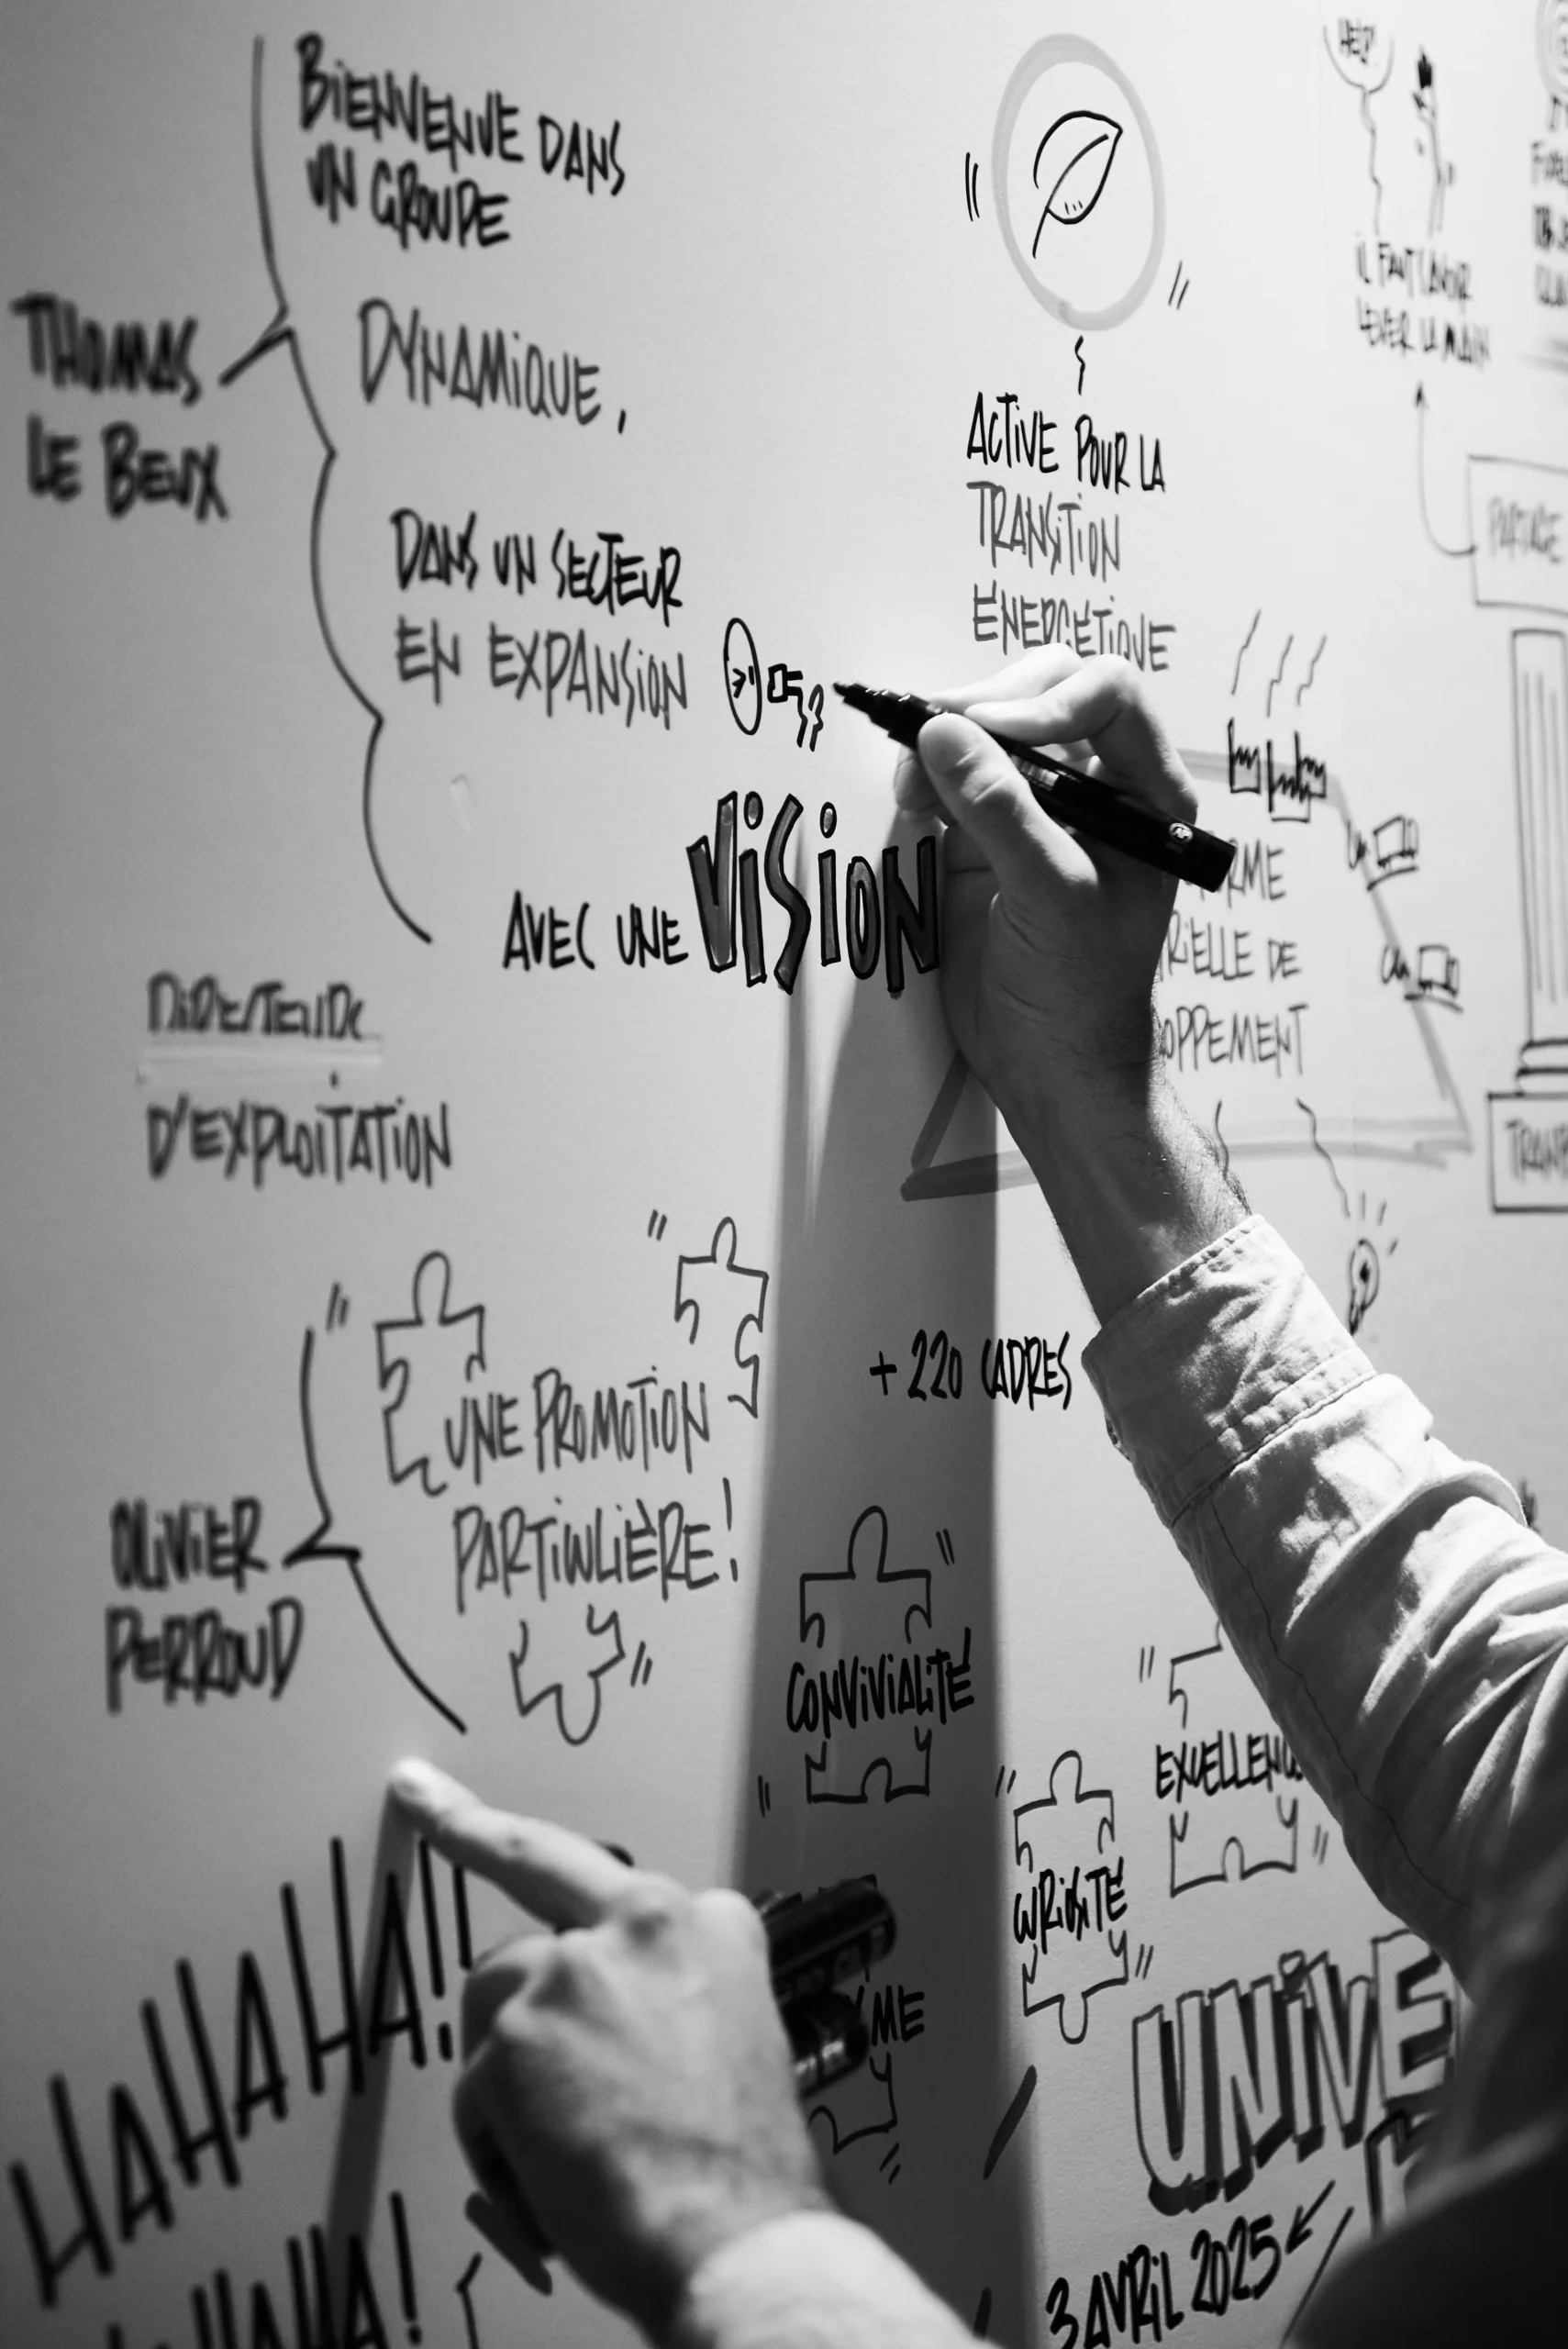 THOMAS
LE BEUX
BIENVENUE DANS
UN GROUPE
DYNAMIQUE,
DANS UN SECTEUR
EN EXPANSION
AVEC UNE VISION
DIRECTEUR
D'EXPLOITATION
OLIVIER
PERROUD
UNE PROMOTION
PARTICULIÈRE!
HAHAHAHA!!
HAHA!
ACTIVE POUR LA
TRANSITION
ÉNERGÉTIQUE
HEP!
IL FAUT SAVOIR
LEVER LA MAIN
PARTAGE
RME
RIELLE DE
OPPEMENT
TRANP
+ 220 CADRES
CONVIVIALITÉ
EXCELLENC
CURIOSITÉ
ME
UNIVE
3 AVRIL 2025